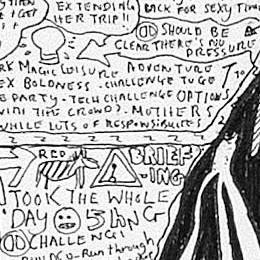 EXTENDING
HER TRIP!!
BACK FOR SEXY TIME
SHOULD BE
CLEAR THERE'S NO
PRESSURE
RK MAGIC LEISURE ADVENTURE
EX BOLDNESS - CHALLENGE TO GET
E PARTY - TECH CHALLENGE OPTIONS
THE CROWD? MOTHERS
WHILE LOTS OF RESPONSIBILITIES
RED
BRIEF-
-ING
TOOK THE WHOLE
DAY
CHALLENGE!
Run through